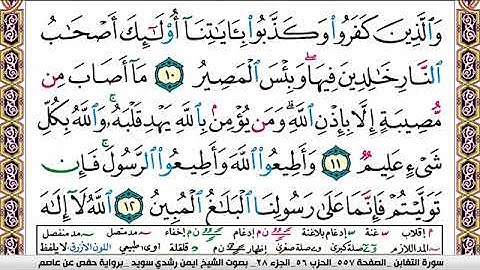 وَٱلَّذِينَ كَفَرُوا۟ وَكَذَّبُوا۟ بِـَٔايَٰتِنَآ أُو۟لَٰٓئِكَ أَصْحَٰبُ
ٱلنَّارِ خَٰلِدِينَ فِيهَا ۖ وَبِئْسَ ٱلْمَصِيرُ ١٠ مَآ أَصَابَ مِن
مُّصِيبَةٍ إِلَّا بِإِذْنِ ٱللَّهِ ۗ وَمَن يُؤْمِنۢ بِٱللَّهِ يَهْدِ قَلْبَهُۥ ۚ وَٱللَّهُ بِكُلِّ
شَىْءٍ عَلِيمٌ ١١ وَأَطِيعُوا۟ ٱللَّهَ وَأَطِيعُوا۟ ٱلرَّسُولَ ۚ فَإِن
تَوَلَّيْتُمْ فَإِنَّمَا عَلَىٰ رَسُولِنَا ٱلْبَلَٰغُ ٱلْمُبِينُ ١٢ ٱللَّهُ لَآ إِلَٰهَ
م إقلاب س غنة إدغام بلاغنة ن م إدغام ن م إخفاء مد متصل مد منفصل
المد اللازم صلة كبرى وے صلة صغرى إظهار ن م قلقلة اوى طبيعي اللون الأزرق لا يلفظ
سورة التغابن _ الصفحة ٥٥٧ _ الحزب ٥٦ _ الجزء ٢٨ _ بصوت الشيخ ايمن رشدي سويد _ برواية حفص عن عاصم